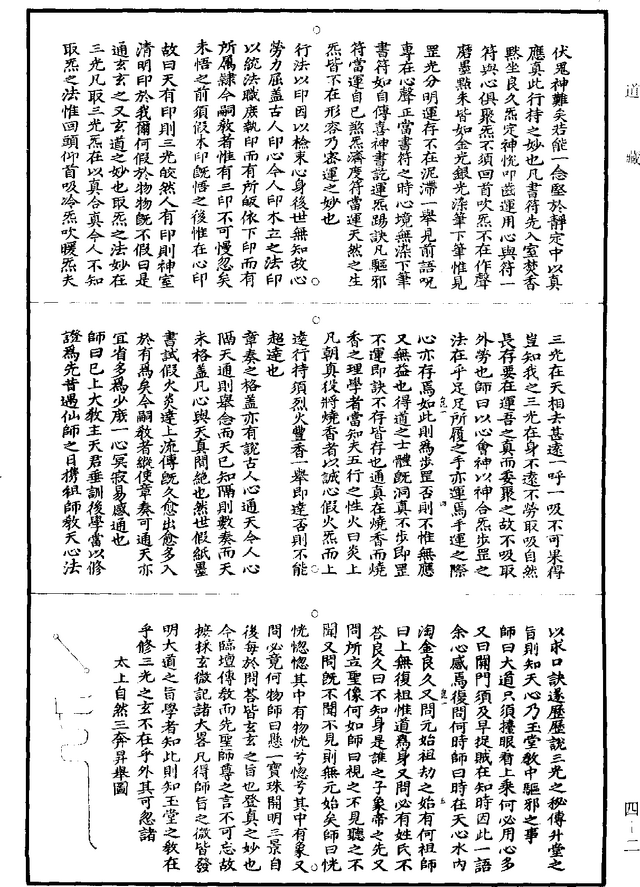 道藏
伏鬼神難矣若能一念堅於靜定中以真
應真此行持之妙也凡書符先入室焚香
黙坐良久炁定神恱叩齒運用心與符一
符與心俱聚炁不須回首吹炁不在作聲
磨墨點朱皆如金光銀光染筆下筆惟見
罡光分明運存不在泥滯一舉見前語呪
專在心聲正當書符之時心境無染下筆
書符如自傳喜神書訖運炁踢訣凡驅邪
符當運自己煞炁濟度符當運天然之生
炁皆下在形容乃密運之妙也
行法以印因以檢束心身後世無知故心
勞力屈蓋古人印心令人印木立之法印
以統法職處執印而有所皈依下印而有
所屬隸今嗣敎者惟有三印不可慢忽矣
未悟之前須假木印旣悟之後惟在心印
故曰天有印則三光皎然人有印則神室
清明印於我爾何假於物物旣不假曰是
通玄玄之又玄道之妙也取炁之法妙在
三光凡取三光炁在以真合真今人不知
取炁之法惟回頭仰首吸冷炁吹暖炁夫
三光在天相去甚遠一呼一吸不可果得
豈知我之三光在身不遠不勞取吸自然
長存要在運吾之真而委聚之故不吸取
外勞也師曰以心會神以神合炁步罡之
法在乎足足所履之乎亦運爲手運之際
心亦存焉如此則爲步罡否則不惟無應
又無益也得道之士體旣洞真不步即罡
不運即訣不存皆存也通真在燒香而燒
香之理學者當知夫五行之性火曰炎上
凡朝真役將燒香者以誠心假火炁而上
達行持須烈火豐香一舉即達否則不能
超達也
章奏之格蓋亦有說古人心通天令人心
隔天通則舉念而天已知隔則數奏而天
未格蓋凡心與天真間絶也然世假紙墨
書試假火炎達上流傳旣久愈出愈多入
於有爲矣今嗣敎者縱使章奏可通天亦
宜省多爲少庶一心冥寂易感通也
師曰已上大敎主天君垂訓後學當以修
證爲先昔遇仙師之日携祖師敎天心法
以求口訣遂歷歷說三光之秘傳升堂之
旨則知天心乃玉堂敎中驅邪之事
師曰大道只須擡眼看上乘何必用心多
又曰關門須及早捉賊在知時因此一語
余心感焉復問何時師曰時在天心水內
淘金良久又問元始祖劫之始有何祖師
曰上無復祖惟道爲身又問必有姓氏不
荅良久曰不知身是誰之子象帝之先又
問所立聖像何如師曰視之不見聽之不
聞又問旣不聞不見則無元始矣師曰恍
恍惚惚其中有物恍兮惚兮其中有象又
問必竟何物師曰懸一寶珠開明三景自
後每於問荅皆玄玄之旨也登真之妙也
今臨壇傳敎而先聖師尊之言不可忘故
摭採玄微記諸大畧凡得師旨之微皆發
明大道之旨學者知此則知玉堂之敎在
乎修三光之玄不在乎外其可忽諸
太上自然三奔昇舉圖
四-二